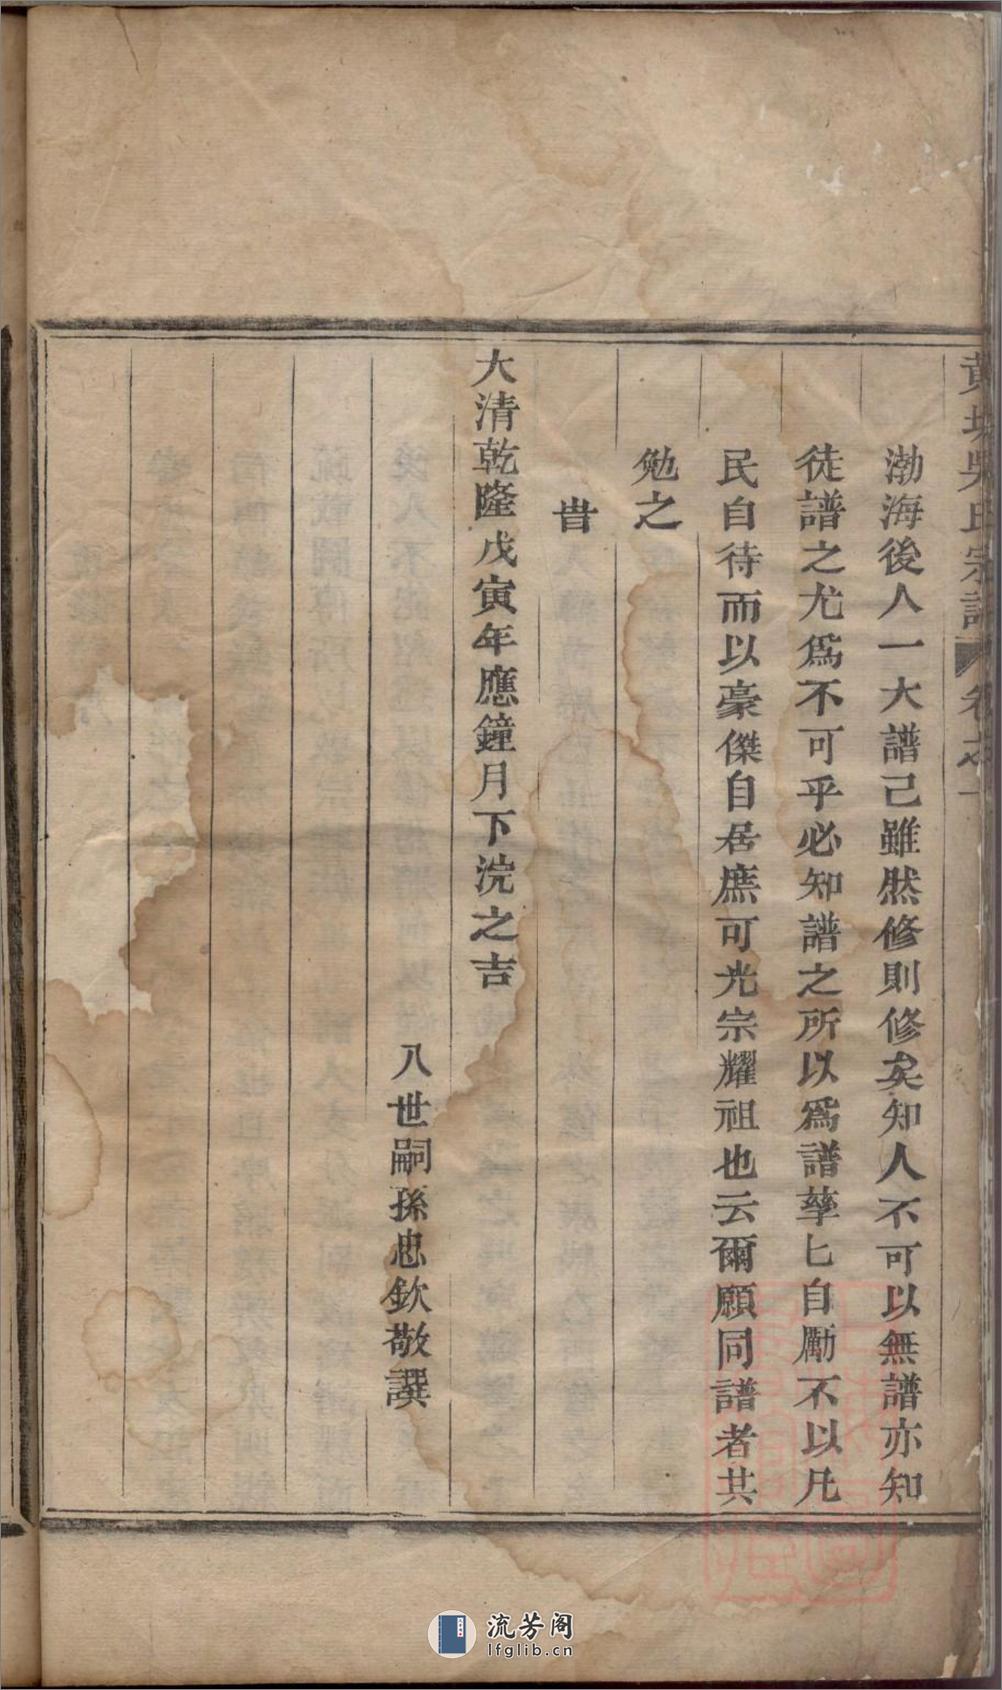 黃塘吳氏宗譜 卷之一
渤海後人一大譜己雖然修則修矣知人不可以無譜亦知
徒譜之尤爲不可乎必知譜之所以爲譜孳匕自勵不以凡
民自待而以豪傑自居庶可光宗耀祖也云爾願同譜者共
勉之
旹
大清乾隆戊寅年應鐘月下浣之吉
八世嗣孫忠欽敬譔
流芳阁
lfglib.cn